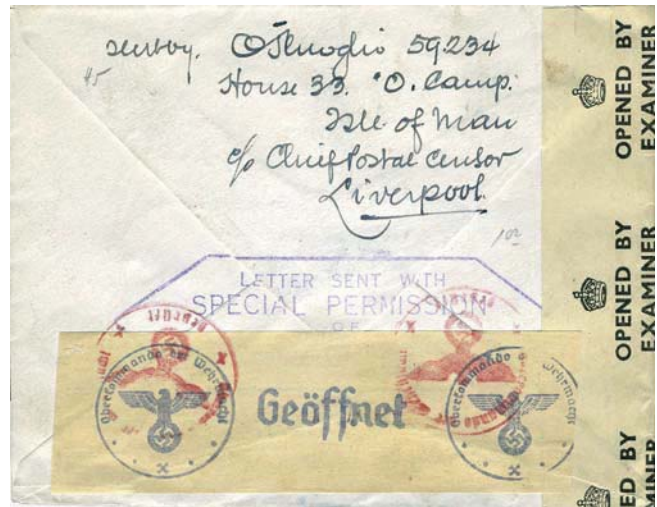 sent by.
59234
45
House 33. "O. Camp.
Isle of Man
c/o Chief Postal Censor
Liverpool
102
LETTER SENT WITH
SPECIAL PERMISSION
OF
Geprüft
Oberkommando der Wehrmacht
Geöffnet
Oberkommando Wehrmacht
OPENED BY
EXAMINER
OPENED BY
EXAMINER
ED BY
MINER